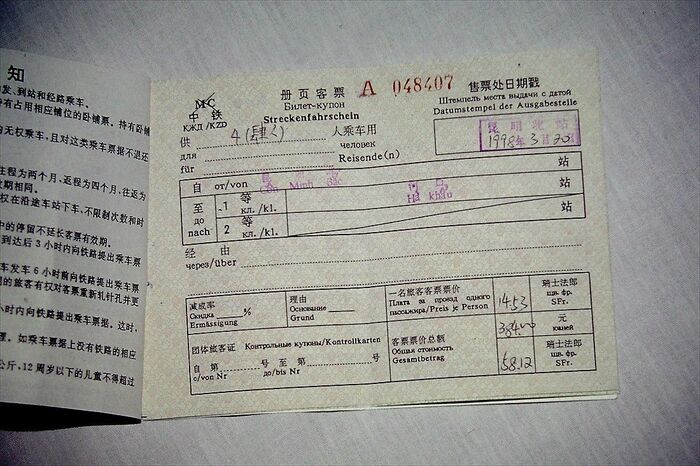 知
发、到站和经路乘车。
持有占用相应铺位的卧铺票。持有卧铺
为无权乘车，且对这类乘车票据不退还
往程为两个月，返程为四个月，往返为
效期相同。
权在沿途车站下车，不限制次数和时
中的停留不延长客票有效期。
到达后 3 小时内向铁路提出乘车票
车发车 6 小时前向铁路提出乘车票
的旅客有权对客票重新轧针孔并更
小时内向铁路提出乘车票据。这时，
理。如乘车票据上没有铁路的相应
公斤。12 周岁以下的儿童不得超过
MC
中 铁
КЖД /KZD
册页客票
Билет-купон
Streckenfahrschein
A 048407
售票处日期戳
Штемпель места выдачи с датой
Datumstempel der Ausgabestelle
昆明北站
1998年3月20
供 4(肆人) 人乘车用
для человек
für Reisende(n)
自 от/von 站
Con Minh Bac
至 1 等
до кл./kl. 站
Ha khau
nach 2 等
кл./kl. 站
经 由
через/über
减成率 %
Скидка
Ermässigung
理由
Основание
Grund
一名旅客客票票价
Плата за проезд одного
пассажира/Preis je Person
14.53
瑞士法郎
шв. фр.
SFr.
384.00
元
юаней
团体旅客证 Контрольные купоны/Kontrollkarten
自 第 号 至 第 号
с/von Nr до/bis Nr
客票票价总额
Общая стоимость
Gesamtbetrag
58.12
瑞士法郎
шв. фр.
SFr.